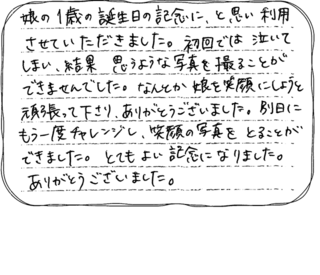 娘の1歳の誕生日の記念に、と思い利用
させていただきました。初回では泣いて
しまい、結果 思うような写真を撮ることが
できませんでした。なんとか娘を笑顔にしようと
頑張って下さり、ありがとうございました。別日に
もう一度チャレンジし、笑顔の写真をとることが
できました。とてもよい記念になりました。
ありがとうございました。